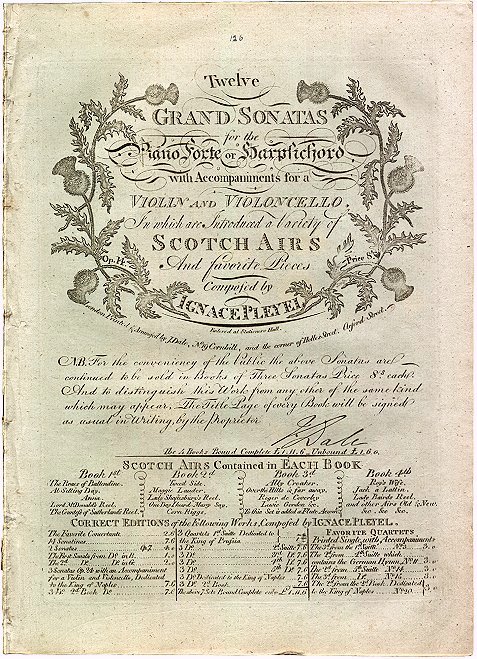 126
Twelve
GRAND SONATAS
for the
Piano Forte or Harpsichord
with Accompaniments for a
VIOLIN AND VIOLONCELLO,
In which are Introduced a Variety of
SCOTCH AIRS
And favorite Pieces
Composed by
IGNACE PLEYEL
Op. 14
Price 8s
Entered at Stationers Hall.
London Printed & Arranged by J. Dale, No. 19 Cornhill, and the corner of Holles Street, Oxford Street.
N.B. For the conveniency of the Public the above Sonatas are
continued to be sold in Books of Three Sonatas Price 8s each.
And to distinguish this Work from any other of the same kind
which may appear, The Title Page of every Book will be signed
as usual in Writing, by the Proprietor
J Dale
The 4 Books Bound Complete £1.11.6, Unbound £1.6.0.
SCOTCH AIRS Contained in EACH BOOK
Book 1st
The Braes of Ballandine.
At Setting Day.
Anna.
Lord McDonald's Reel.
The Countess of Sutherland's Reel.
Book 2d
Tweed Side.
Maggie Lauder.
Lady Shaftsbury's Reel.
One Day I heard Mary Say.
Corn Riggs.
Book 3d
Ally Croaker.
Over the Hills & far away.
Roger de Coverley
Lewie Gordon &c.
To this Set is added a Flute Accomp.
Book 4th
Roy's Wife.
Jack a Lattin.
Lady Bairds Reel.
and other Airs Old & New.
&c. &c. &c.
CORRECT EDITIONS of the Following Works, Composed by IGNACE PLEYEL.
The Favorite Concertante. 2.6
Sonatinas
The First Sonata from Do. in B.
3 Sonatas Op. 24 with an Accompaniment
for a Violin and Violoncello, Dedicated
to the King of Naples 7.6
3 Do. 2d Book Do. 7.6
3 Quartetts 1st Suitte Dedicated to
the King of Prussia
3 Do. 2d Suitte 7.6
3 Do. 3d Do. 7.6
3 Do. 4th Do. 7.6
3 Do. 5th Do. 7.6
3 Do. Dedicated to the King of Naples 7.6
3 Do. 2d Book 7.6
The above 7 Sets Bound Complete
FAVORITE QUARTETTS
Printed Single, with Accompaniments
The 3d from the 1st Suitte.
The 1st from Suitte which
contains the German Hymn
The 1st from the 2d Book Dedicated
to the King of Naples